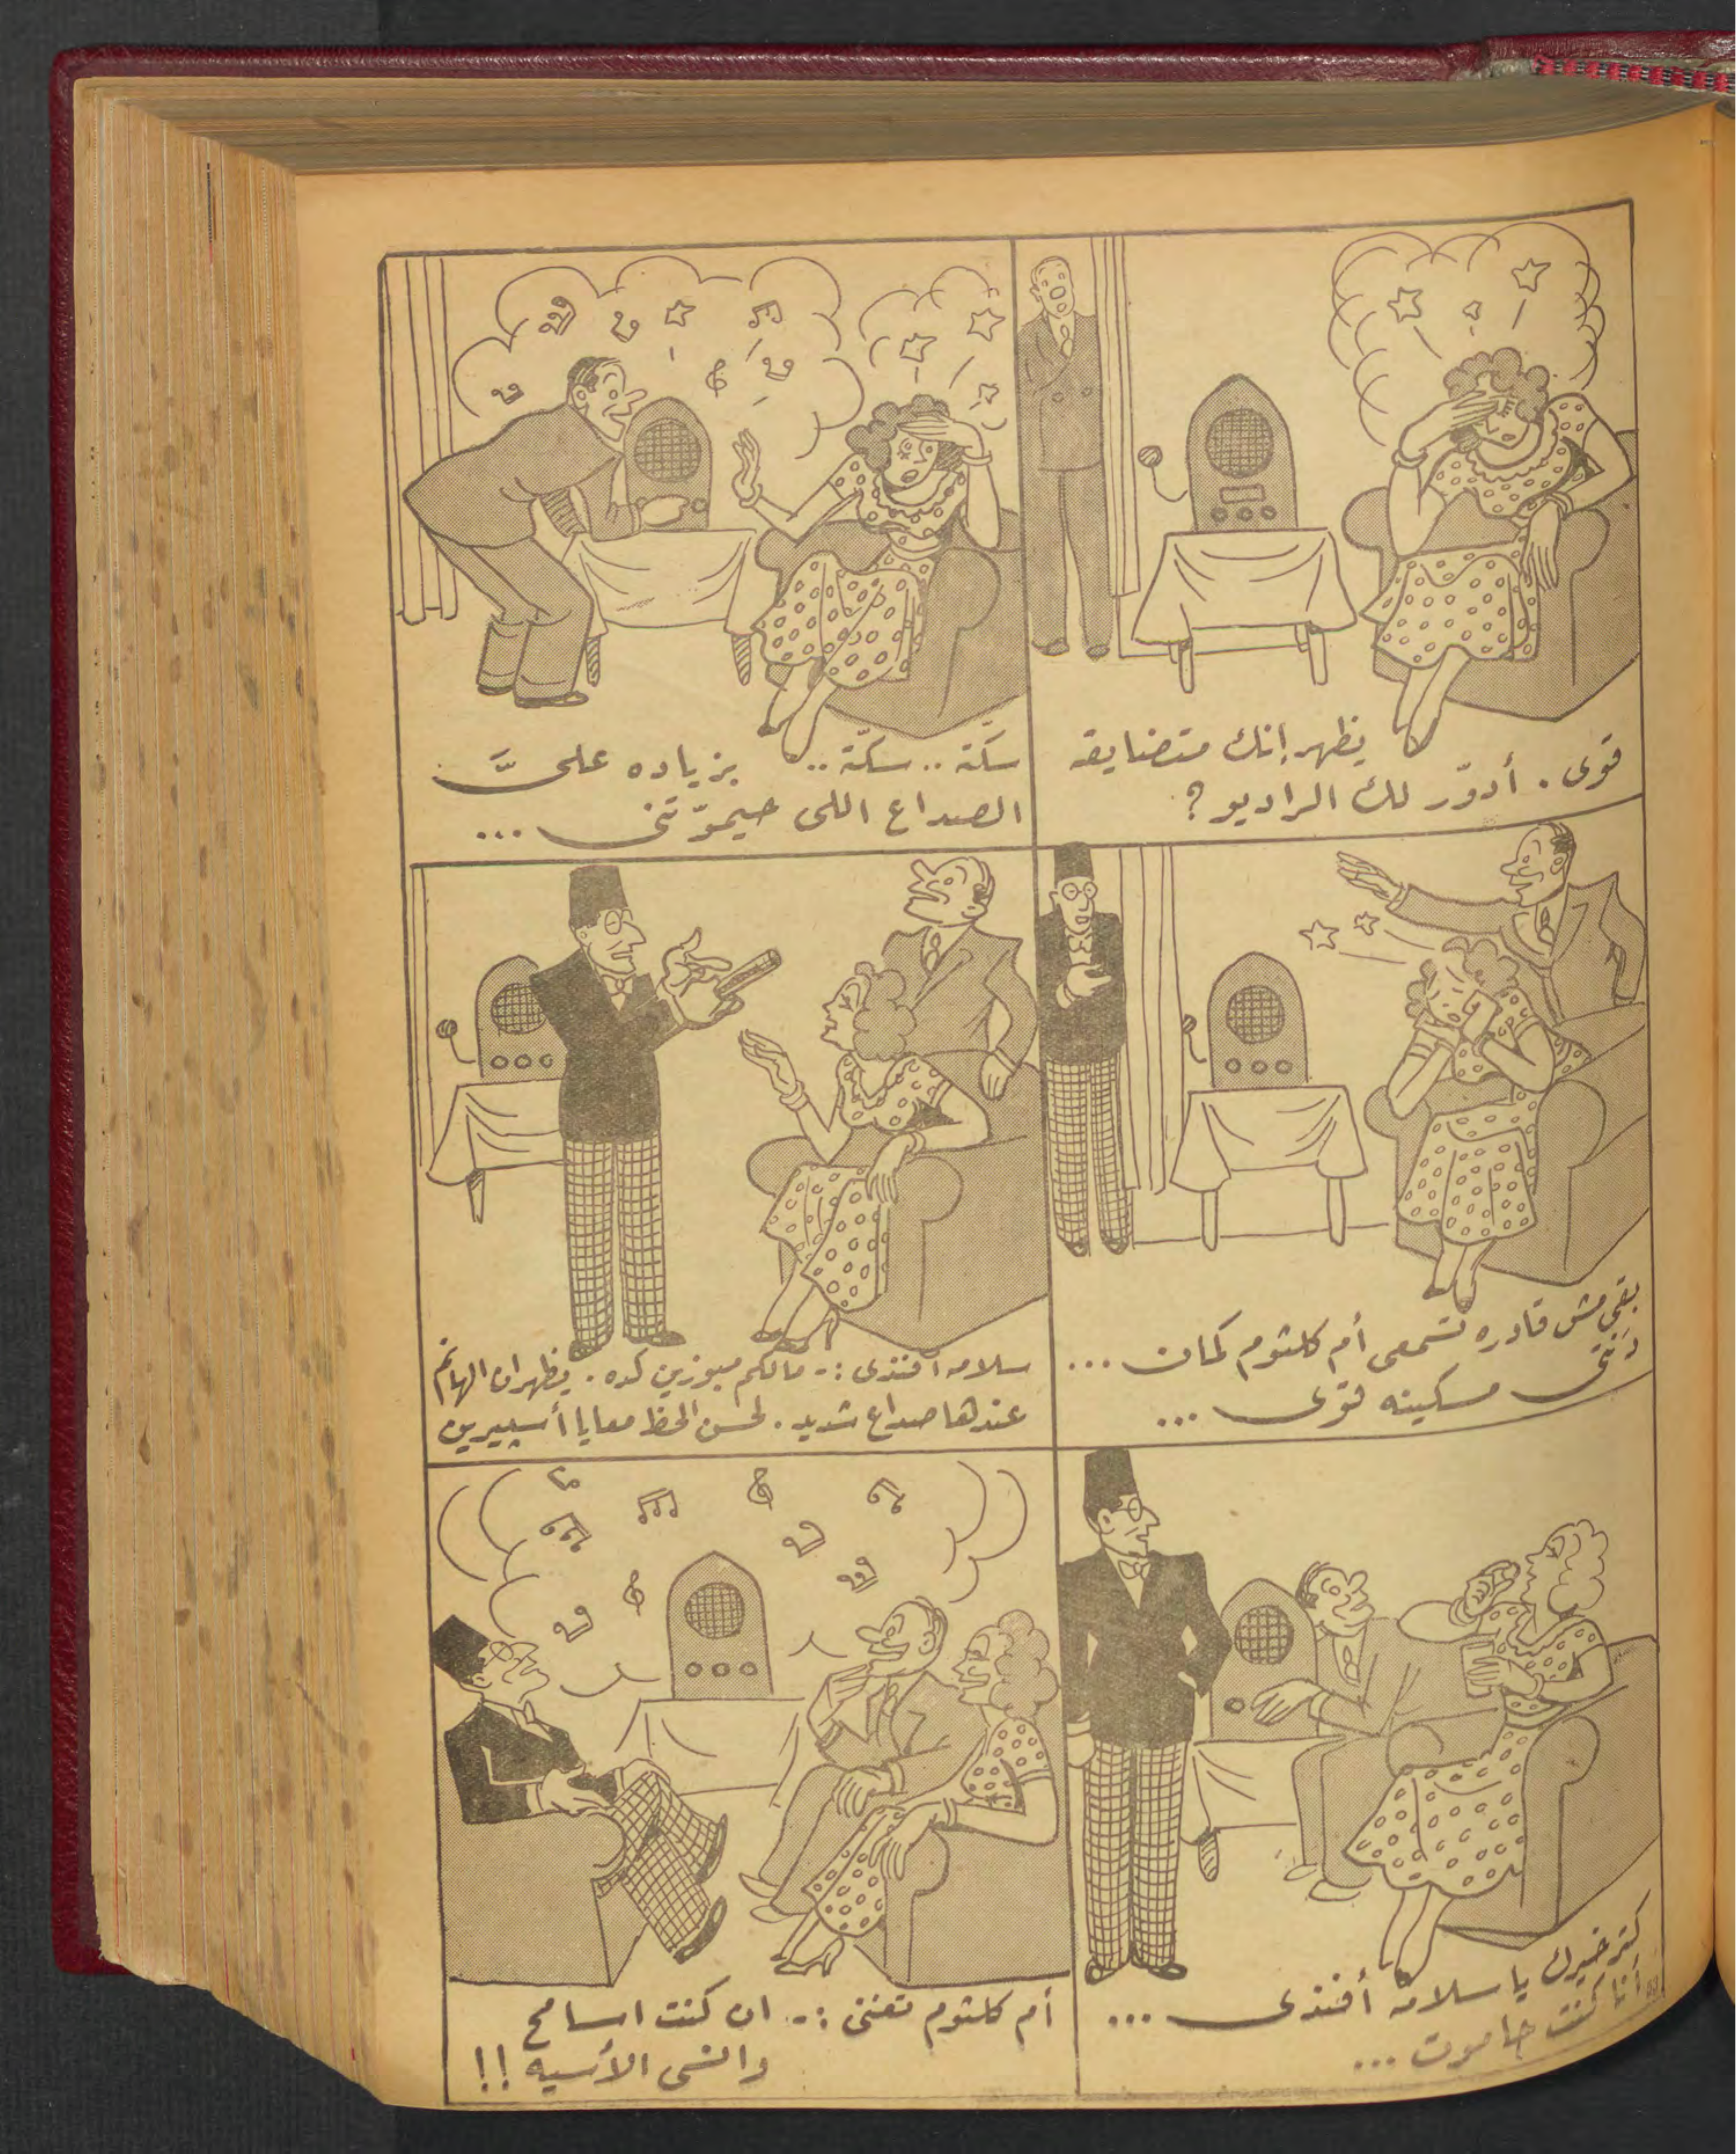 يظهر إنك متضايقه
قوى . أدوّر لك الراديو ؟
سكّته .. سكّته .. بزياده علىَّ
الصداع اللى حيموّتنى ...
بقى مش قادره تسمعى أم كلثوم كمان ...
دنتى مسكينه قوى ...
سلامه أفندى :- مالكم مبوزين كده . يظهر ان الهانم
عندها صداع شديد . لحسن الحظ معايا أسبيرين
كتر خيرك يا سلامه أفندى ...
أنا كنت حاموت ...
أم كلثوم تغنى :- ان كنت اسامح
وانسى الأسيه !!